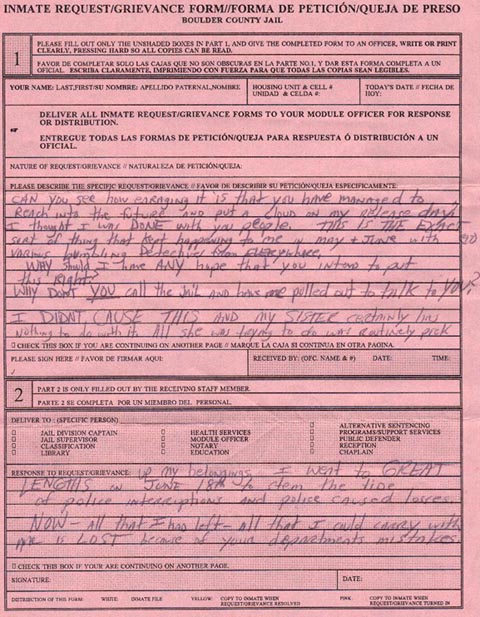 INMATE REQUEST/GRIEVANCE FORM//FORMA DE PETICIÓN/QUEJA DE PRESO
BOULDER COUNTY JAIL
1
PLEASE FILL OUT ONLY THE UNSHADED BOXES IN PART 1, AND GIVE THE COMPLETED FORM TO AN OFFICER, WRITE OR PRINT
CLEARLY, PRESSING HARD SO ALL COPIES CAN BE READ.
FAVOR DE COMPLETAR SOLO LAS CAJAS QUE NO SON OBSCURAS EN LA PARTE NO.1, Y DAR ESTA FORMA COMPLETA A UN
OFICIAL. ESCRIBA CLARAMENTE, IMPRIMIENDO CON FUERZA PARA QUE TODAS LAS COPIAS SEAN LEGIBLES.
YOUR NAME: LAST,FIRST/SU NOMBRE: APELLIDO PATERNAL,NOMBRE
HOUSING UNIT & CELL #
UNIDAD & CELDA #:
TODAY'S DATE // FECHA DE
HOY:
DELIVER ALL INMATE REQUEST/GRIEVANCE FORMS TO YOUR MODULE OFFICER FOR RESPONSE
OR DISTRIBUTION.
ENTREGUE TODAS LAS FORMAS DE PETICIÓN/QUEJA PARA RESPUESTA Ó DISTRIBUCIÓN A UN
OFICIAL.
NATURE OF REQUEST/GRIEVANCE // NATURALEZA DE PETICIÓN/QUEJA:
PLEASE DESCRIBE THE SPECIFIC REQUEST/GRIEVANCE // FAVOR DE DESCRIBIR SU PETICIÓN/QUEJA ESPECIFICAMENTE:
CAN YOU SEE how enraging it is that you have managed to
reach into the future and put a cloud on my release day?
I thought I was DONE with you people. THIS IS THE EXACT
sort of thing that kept happening to me in may + June with
various bumbling Detectives from EVERYWHERE.
WHY should I have ANY hope that you intend to put
this RIGHT?
WHY DON'T YOU call the Jail and have me pulled out to talk to YOU?
I DIDN'T CAUSE THIS AND my SISTER certainly has
nothing to do with it. All she was trying to do was routinely pick
CHECK THIS BOX IF YOU ARE CONTINUING ON ANOTHER PAGE // MARQUE LA CAJA SI CONTINUA EN OTRA PAGINA.
PLEASE SIGN HERE // FAVOR DE FIRMAR AQUI:
RECEIVED BY: (OFC. NAME & #)
DATE:
TIME:
2
PART 2 IS ONLY FILLED OUT BY THE RECEIVING STAFF MEMBER.
PARTE 2 SE COMPLETA POR UN MIEMBRO DEL PERSONAL.
DELIVER TO: (SPECIFIC PERSON)
JAIL DIVISION CAPTAIN
JAIL SUPERVISOR
CLASSIFICATION
LIBRARY
HEALTH SERVICES
MODULE OFFICER
NOTARY
EDUCATION
ALTERNATIVE SENTENCING
PROGRAMS/SUPPORT SERVICES
PUBLIC DEFENDER
RECEPTION
CHAPLAIN
RESPONSE TO REQUEST/GRIEVANCE: up my belongings. I went to GREAT
LENGTHS on JUNE 18th to stem the tide
of police interruptions and police caused losses.
NOW - all that I had left - all that I could carry with
me is LOST because of your departments mistakes.
CHECK THIS BOX IF YOUR ARE CONTINUING ON ANOTHER PAGE.
SIGNATURE:
DATE:
DISTRIBUTION OF THIS FORM
WHITE: INMATE FILE
YELLOW: COPY TO INMATE WHEN
REQUEST/GRIEVANCE RESOLVED
PINK: COPY TO INMATE WHEN
REQUEST/GRIEVANCE TURNED IN